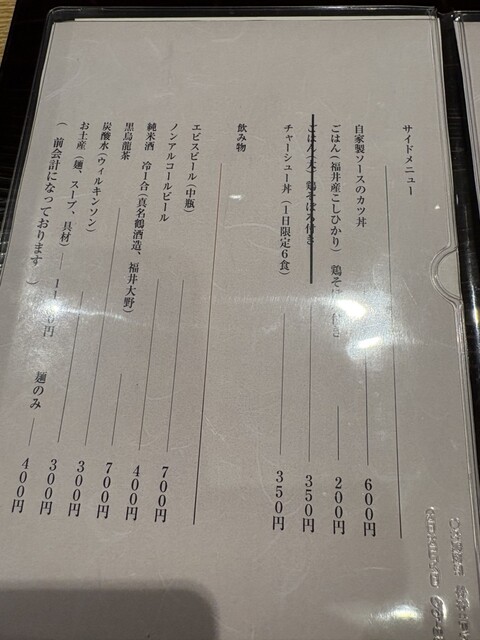 サイドメニュー
自家製ソースのカツ丼 600円
ごはん(福井産こしひかり) 鶏そ 付き 200円
ごはん(大)鶏そぼろ付き 350円
チャーシュー丼(1日限定6食) 350円
飲み物
エビスビール(中瓶) 700円
ノンアルコールビール 400円
純米酒 冷1合(真名鶴酒造、福井大野) 700円
黒烏龍茶 300円
炭酸水(ウィルキンソン) 300円
お土産(麺、スープ、具材) 円 麺のみ 400円
( 前会計になっております )